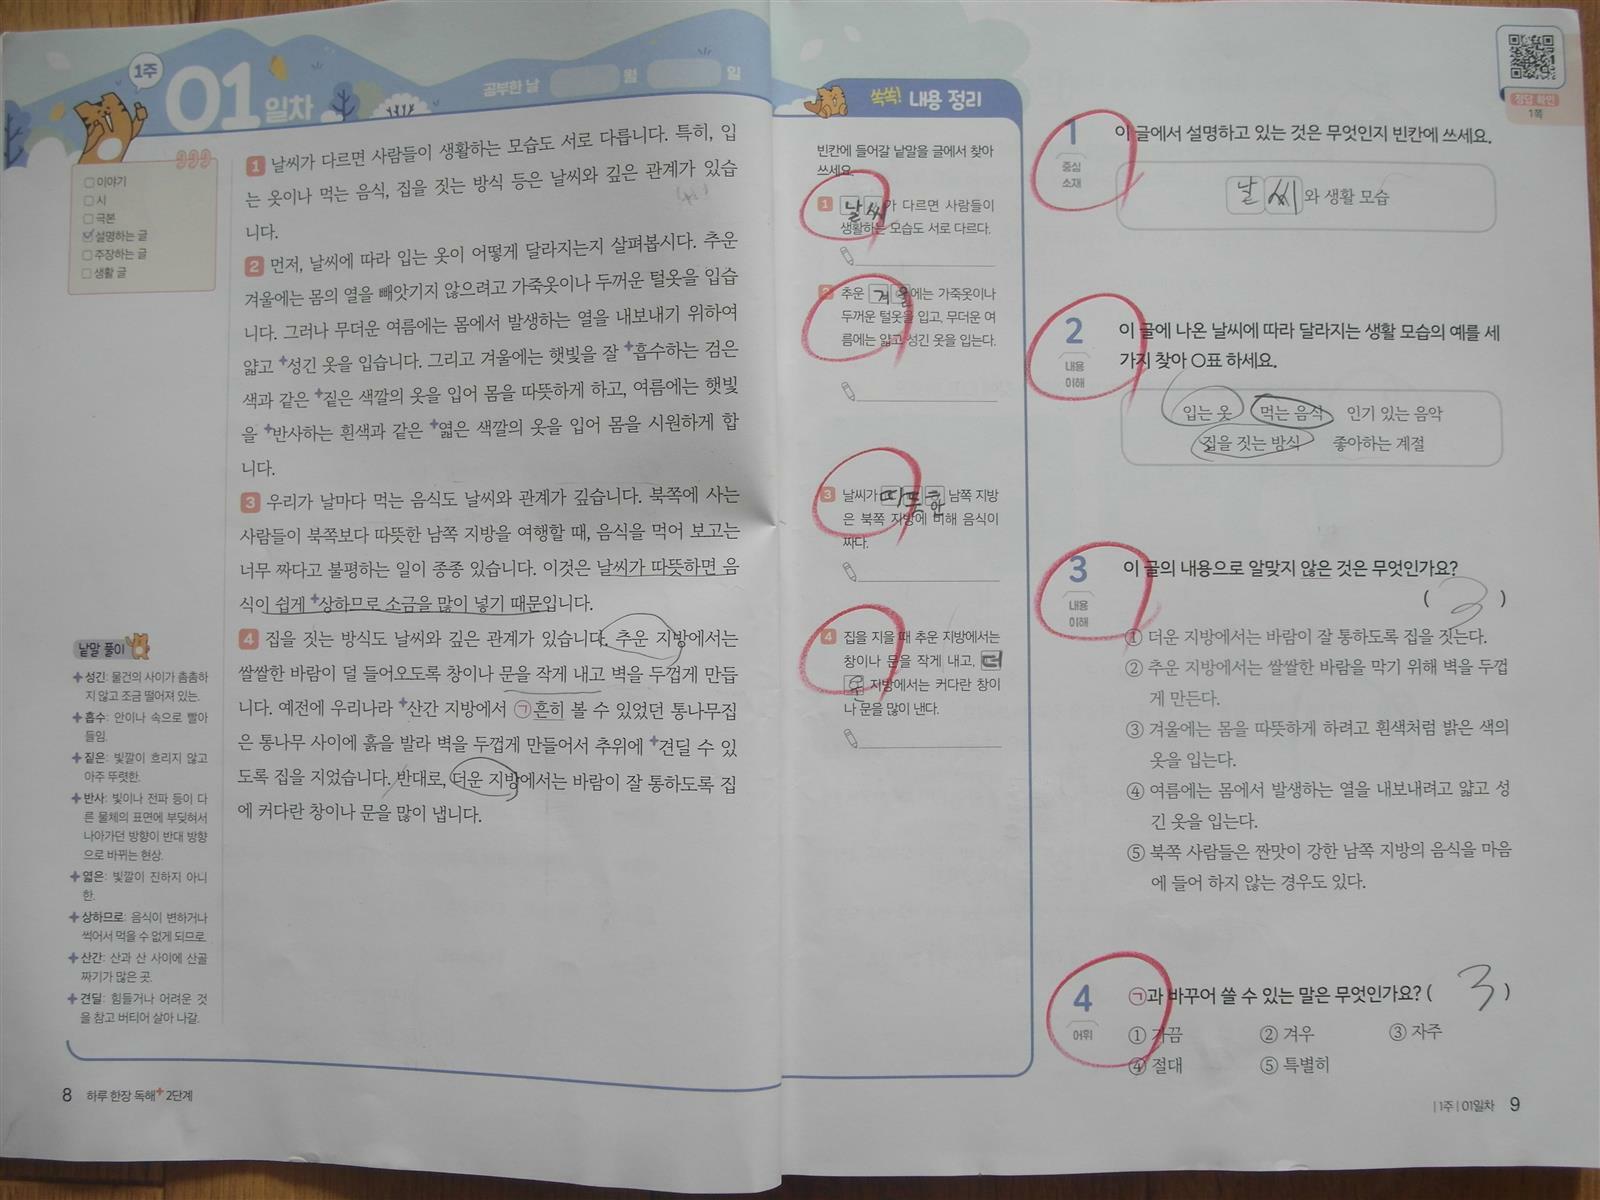 1주
01일차
공부한 날 월 일
이야기
시
극본
설명하는 글
주장하는 글
생활 글
1 날씨가 다르면 사람들이 생활하는 모습도 서로 다릅니다. 특히, 입
는 옷이나 먹는 음식, 집을 짓는 방식 등은 날씨와 깊은 관계가 있습
니다.
2 먼저, 날씨에 따라 입는 옷이 어떻게 달라지는지 살펴봅시다. 추운
겨울에는 몸의 열을 빼앗기지 않으려고 가죽옷이나 두꺼운 털옷을 입습
니다. 그러나 무더운 여름에는 몸에서 발생하는 열을 내보내기 위하여
얇고 +성긴 옷을 입습니다. 그리고 겨울에는 햇빛을 잘 +흡수하는 검은
색과 같은 +짙은 색깔의 옷을 입어 몸을 따뜻하게 하고, 여름에는 햇빛
을 +반사하는 흰색과 같은 +엷은 색깔의 옷을 입어 몸을 시원하게 합
니다.
3 우리가 날마다 먹는 음식도 날씨와 관계가 깊습니다. 북쪽에 사는
사람들이 북쪽보다 따뜻한 남쪽 지방을 여행할 때, 음식을 먹어 보고는
너무 짜다고 불평하는 일이 종종 있습니다. 이것은 날씨가 따뜻하면 음
식이 쉽게 +상하므로 소금을 많이 넣기 때문입니다.
4 집을 짓는 방식도 날씨와 깊은 관계가 있습니다. 추운 지방에서는
쌀쌀한 바람이 덜 들어오도록 창이나 문을 작게 내고 벽을 두껍게 만듭
니다. 예전에 우리나라 +산간 지방에서 ㉠흔히 볼 수 있었던 통나무집
은 통나무 사이에 흙을 발라 벽을 두껍게 만들어서 추위에 +견딜 수 있
도록 집을 지었습니다. 반대로, 더운 지방에서는 바람이 잘 통하도록 집
에 커다란 창이나 문을 많이 냅니다.
낱말 풀이
+성긴: 물건의 사이가 촘촘하
지 않고 조금 떨어져 있는.
+흡수: 안이나 속으로 빨아
들임.
+짙은: 빛깔이 흐리지 않고
아주 뚜렷한.
+반사: 빛이나 전파 등이 다
른 물체의 표면에 부딪혀서
나아가던 방향이 반대 방향
으로 바뀌는 현상.
+엷은: 빛깔이 진하지 아니
한.
+상하므로: 음식이 변하거나
썩어서 먹을 수 없게 되므로.
+산간: 산과 산 사이에 산골
짜기가 많은 곳.
+견딜: 힘들거나 어려운 것
을 참고 버티어 살아 나갈.
8 하루 한장 독해+ 2단계
쏙쏙! 내용 정리
빈칸에 들어갈 낱말을 글에서 찾아
쓰세요.
1 날씨가 다르면 사람들이
생활하는 모습도 서로 다르다.
2 추운 겨울에는 가죽옷이나
두꺼운 털옷을 입고, 무더운 여
름에는 얇고 성긴 옷을 입는다.
3 날씨가 따뜻한 남쪽 지방
은 북쪽 지방에 비해 음식이
짜다.
4 집을 지을 때 추운 지방에서는
창이나 문을 작게 내고, 더
운 지방에서는 커다란 창이
나 문을 많이 낸다.
정답 확인
1쪽
1 이 글에서 설명하고 있는 것은 무엇인지 빈칸에 쓰세요.
중심
소재
날씨와 생활 모습
2 이 글에 나온 날씨에 따라 달라지는 생활 모습의 예를 세
가지 찾아 ○표 하세요.
내용
이해
입는 옷 먹는 음식 인기 있는 음악
집을 짓는 방식 좋아하는 계절
3 이 글의 내용으로 알맞지 않은 것은 무엇인가요?
( 3 )
내용
이해
① 더운 지방에서는 바람이 잘 통하도록 집을 짓는다.
② 추운 지방에서는 쌀쌀한 바람을 막기 위해 벽을 두껍
게 만든다.
③ 겨울에는 몸을 따뜻하게 하려고 흰색처럼 밝은 색의
옷을 입는다.
④ 여름에는 몸에서 발생하는 열을 내보내려고 얇고 성
긴 옷을 입는다.
⑤ 북쪽 사람들은 짠맛이 강한 남쪽 지방의 음식을 마음
에 들어 하지 않는 경우도 있다.
4 ㉠과 바꾸어 쓸 수 있는 말은 무엇인가요? ( 3 )
어휘
① 가끔 ② 겨우 ③ 자주
④ 절대 ⑤ 특별히
|1주|01일차 9